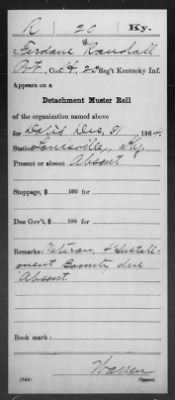 R 20 Ky.
Randall
Pvt., Co. 22 Reg't Kentucky Inf.
Appears on a
Detachment Muster Roll
of the organization named above
for Dec. 31, 186
Station Louisville, Ky.
Present or absent Absent
Stoppage, $ 100 for
Due Gov't, $ 100 for
Remarks: Veteran, Install-
ment Bounty due
Absent
Book mark:
Warren
Copyist.